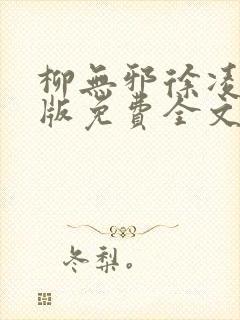 柳無邪徐凌
版免費全文
冬梨。